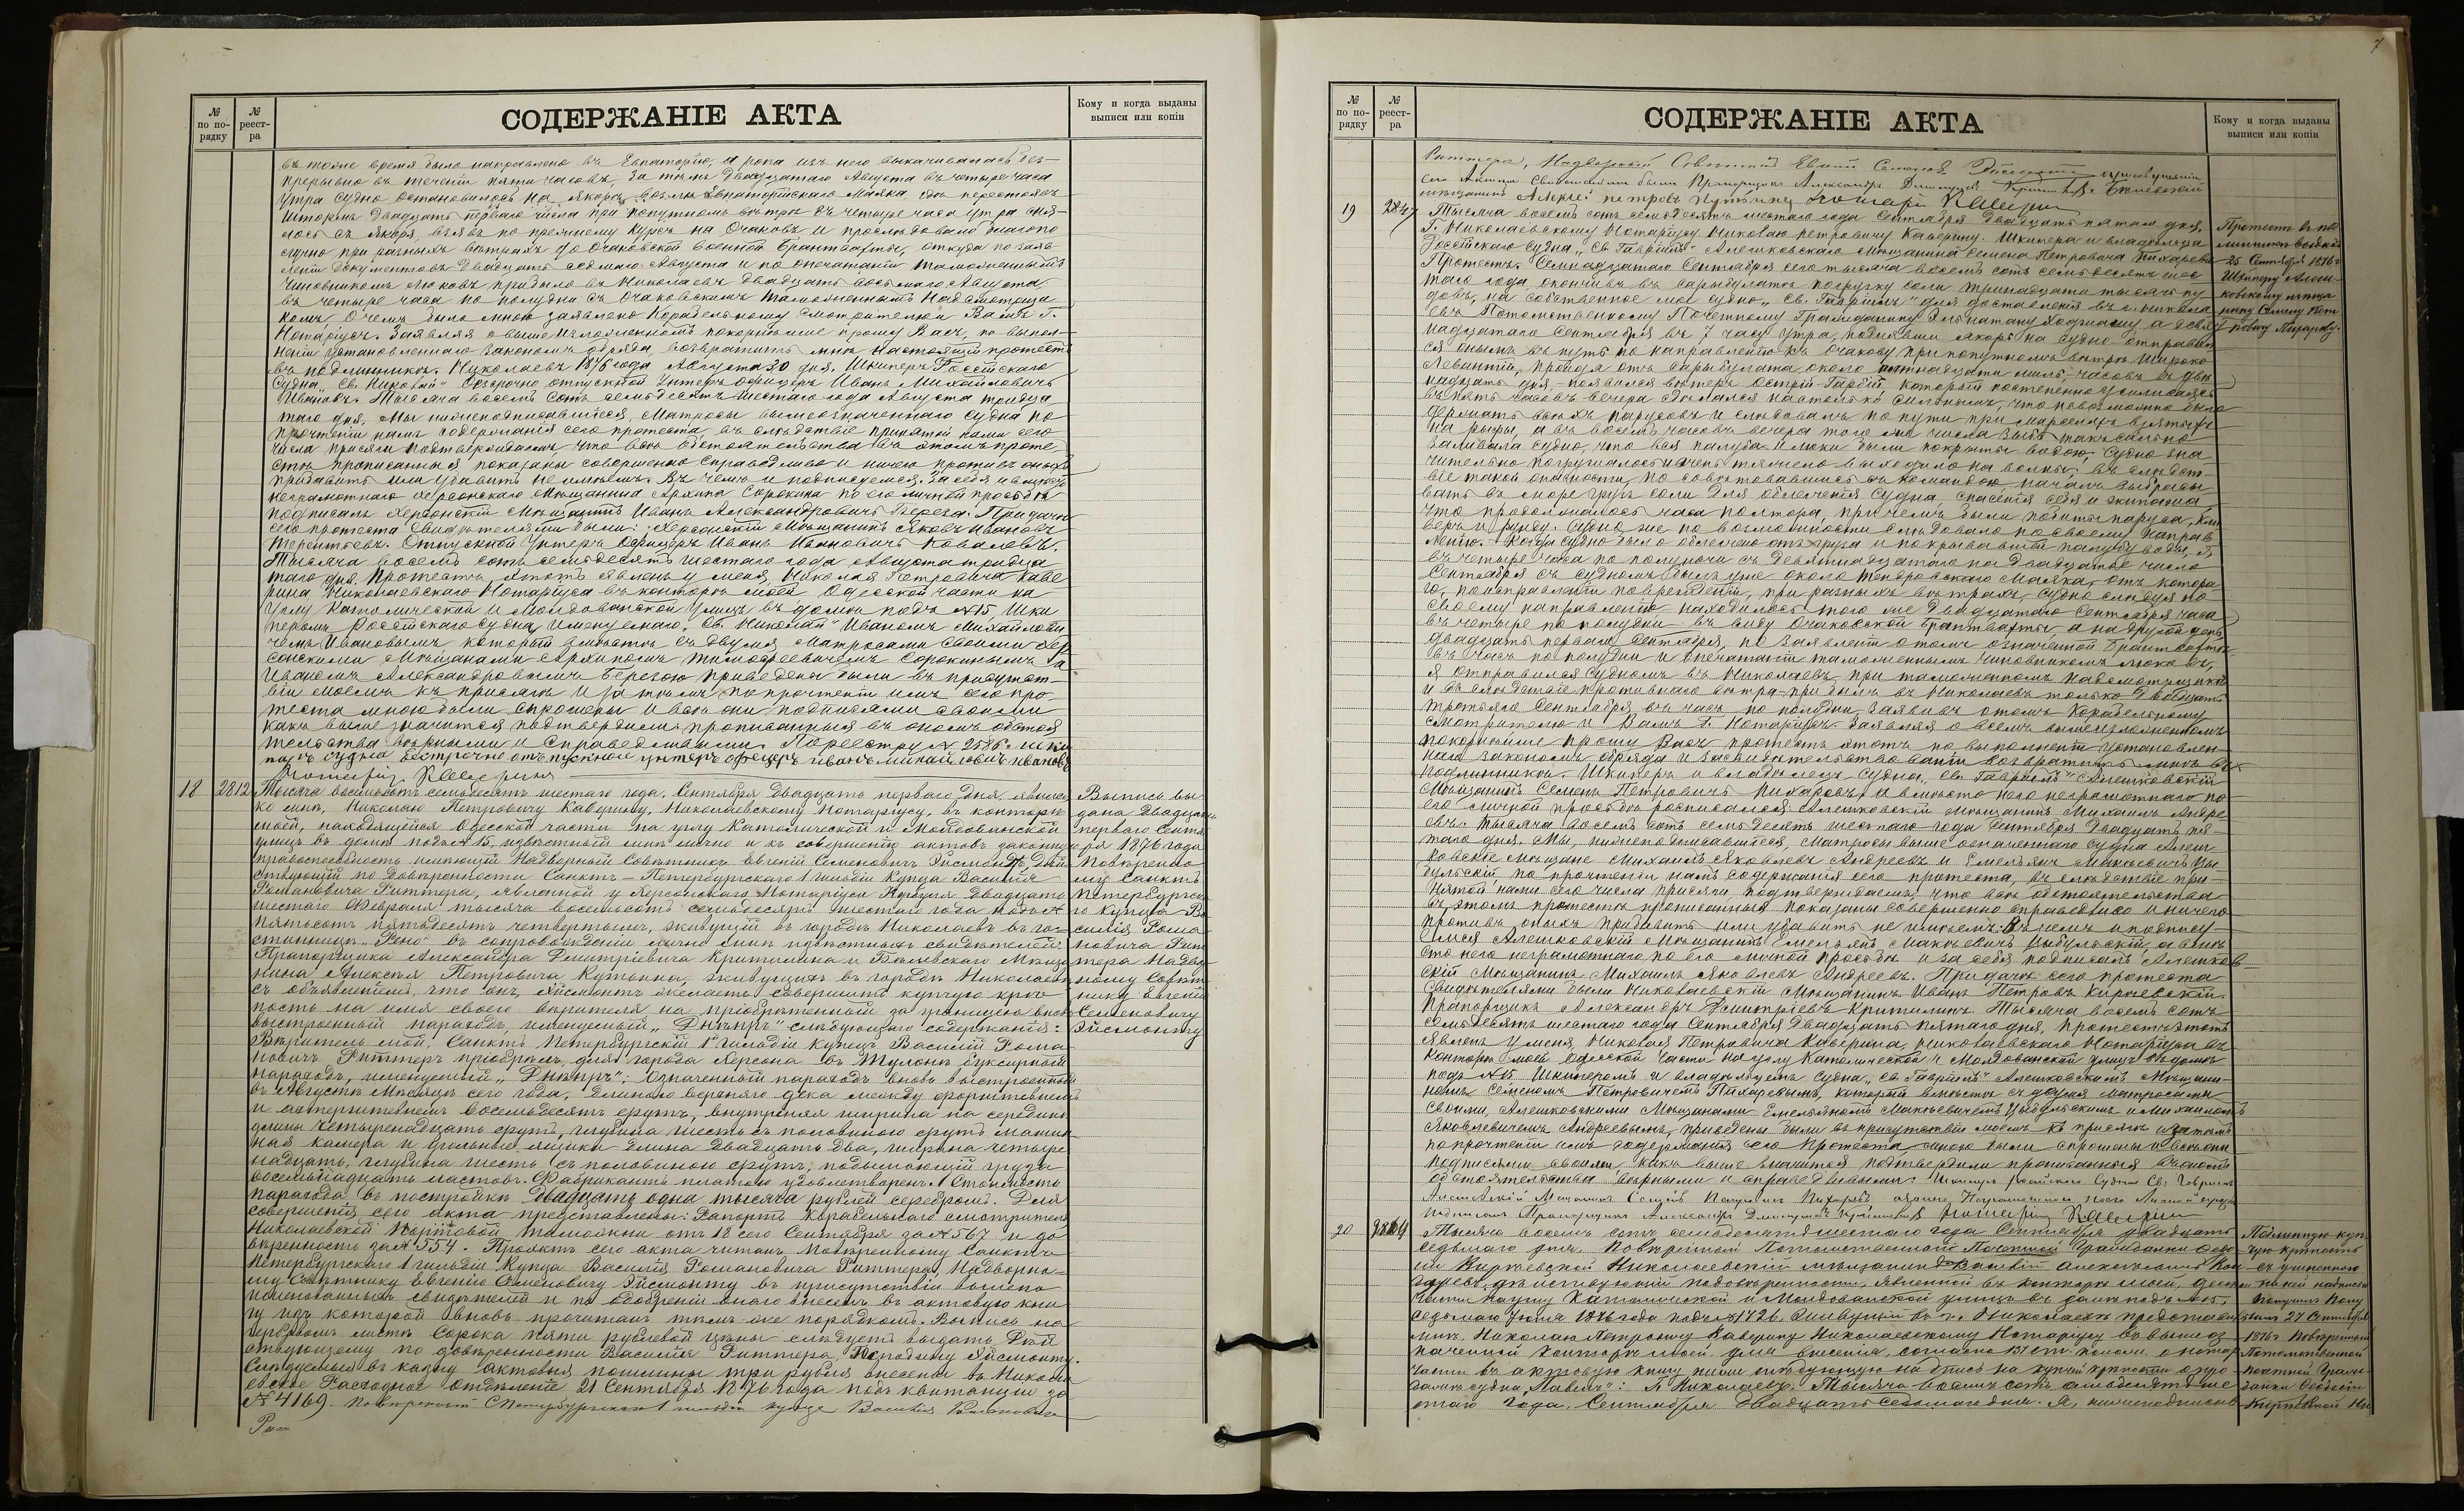 № по по-рядку
№ реест-ра
СОДЕРЖАНІЕ АКТА
Кому и когда выданы выписи или копіи
въ тоже время было направлено въ Евпаторію, а ропа изъ него выкачивалась без-
прерывно въ теченіи пяти часовъ, За тѣмъ двадцатаго Августа въ четыре часа
утра судно остановилось на якорь возлѣ Евпаторійскаго Маяка, гдѣ перестоявъ
Штормъ двадцать перваго числа при попутномъ вѣтрѣ въ четыре часа утра сня-
лось съ якоря, взявъ по прежнему курсъ на Очаковъ и прослѣдовало благопо
лучно при разныхъ вѣтрахъ до Очаковской военной брантвахты, откуда по заяв-
леніи документовъ двадцать седьмаго Августа и по опечатаніи таможеннымъ
Чиновникомъ люковъ прибыло въ Николаевъ двадцать восьмаго Августа,
въ четыре часа по полудни съ Очаковскимъ таможеннымъ надсмотрщи
комъ. О чемъ было мною заявлено Корабельному Смотрителю и Вамъ Г.
Нотаріусъ. Заявляя о выше изложенномъ покорнѣйше прошу Васъ, по выпол-
неніи установленнаго закономъ обряда, возвратить мнѣ настоящій протестъ
въ подлинникѣ. Николаевъ 1876 года Августа 30 дня. Шкиперъ Россійскаго
Судна „Св. Николай" безсрочно отпускной Унтеръ офицеръ Иванъ Михайловичъ
Ивановъ. Тысяча восемь сотъ семьдесятъ шестаго года Августа тридца
таго дня, Мы нижеподписавшіеся, Матросы вышеозначеннаго судна по
прочтеніи намъ содержанія сего протеста, въ слѣдствіе принятой нами сего
числа присяги подтверждаемъ, что всѣ обстоятельства въ этомъ проте-
стѣ прописанныя показаны совершенно справедливо и ничего противъ оныхъ
прибавить или убавить не имѣемъ. Въ чемъ и подписуемся. За себя и вмѣсто
неграмотнаго Херсонскаго мѣщанина Архипа Сорокина по его личной просьбѣ
подписалъ Херсонскій Мѣщанинъ Иванъ Александровичъ Береза. При дачѣ
сего протеста Свидѣтелями были: Херсонскій Мѣщанинъ Яковъ Ивановъ
Терентьевъ. Отпускной Унтеръ Офицеръ Иванъ Ивановичъ Ковалевъ.
Тысяча восемь сотъ семьдесятъ шестаго года Августа тридца
таго дня. Протестъ этотъ явленъ у меня, Николая Петровича Каве
рина Николаевскаго Нотаріуса въ конторѣ моей Одесской части на
углу Католической и Молдованской улицъ въ домѣ подъ № 15 Шки
перомъ Россійскаго Судна именуемаго „Св. Николай" Иваномъ Михайлови
чемъ Ивановымъ который вмѣстѣ съ двумя матросами своими Хер
сонскими Мѣщанами Архипомъ Тимофеевичемъ Сорокинымъ и
Иваномъ Александровымъ Березою приведены были въ присутст-
віи моемъ къ присягѣ и за тѣмъ по прочтеніи имъ сего про
теста мною были спрошены и всѣ они подписями своими
какъ выше значится подтвердили прописанныя въ ономъ обстоя
тельства вѣрными и справедливыми. По реестру № 2586.
судна безсрочно отпускной унтеръ офицеръ Иванъ Михайловичъ Ивановъ
Нотаріусъ Каверинъ
18 2812 Тысяча восемьсотъ семьдесятъ шестаго года, Сентября двадцать перваго дня, явился
ко мнѣ, Николаю Петровичу Каверину, Николаевскому Нотаріусу, въ контору
мою, находящуюся Одесской части на углу Католической и Молдованской
улицъ въ домѣ подъ № 15, извѣстный мнѣ лично и къ совершенію актовъ законную
правоспособность имѣющій Надворный Совѣтникъ Евгеній Семеновичъ Эйсмонтъ, дѣй
ствующій по довѣренности Санктъ-Петербургскаго 1 гильдіи Купца Василія
Романовича Риттера, явленной у Херсонскаго Нотаріуса двадцать
шестаго Февраля тысяча восемьсотъ семьдесятъ шестаго года подъ №
пятьсотъ пятьдесятъ четвертымъ, живущій въ городѣ Николаевѣ въ го-
стинницѣ „Рено" въ сопровожденіи лично мнѣ извѣстныхъ свидѣтелей:
Прапорщика Александра Дмитріевича Критилина и Мѣща
нина Алексѣя Петровича Кутыина, живущихъ въ городѣ Николаевѣ
съ объявленіемъ, что онъ, Эйсмонтъ желаетъ совершить купчую крѣ
пость на имя своего вѣрителя на пріобрѣтенный за границею вновь
выстроенный пароходъ, именуемый „Днѣпръ" слѣдующаго содержанія:
Вѣритель мой, Санктъ Петербургскій 1 гильдіи Купецъ Василій Рома
новичъ Риттеръ пріобрѣлъ для города Херсона въ Тулонѣ буксирный
пароходъ, именуемый „Днѣпръ"; означенный пароходъ вновь выстроенный
въ Августѣ Мѣсяцѣ сего года, длиною верхняго дека между форштевнемъ
и ахтерштевнемъ восемьдесятъ футъ, внутренняя ширина на серединѣ
длины четырнадцать футъ, глубина шесть съ половиною футъ машин
ная камера и угольные ящики длина двадцать два, ширина четыре
надцать, глубина шесть съ половиною футъ, подымающій груза
восемьнадцать ластовъ. Фабрикантъ платою удовлетворенъ. Стоимость
парохода въ постройкѣ двадцать одна тысяча рублей серебромъ. Для
совершенія сего акта представлены: Рапортъ Корабельнаго смотрителя
Николаевской Портовой таможни отъ 18 сего Сентября за № 567 и до
вѣренность за № 554. Проектъ сего акта читанъ повѣренному Санктъ-
Петербургскаго 1 гильдіи Купца Василія Романовича Риттера, Надворно-
му Совѣтнику Евгенію Семеновичу Эйсмонту въ присутствіи выше по
именованныхъ свидѣтелей и по одобреніи онаго внесенъ въ актовую кни
гу изъ которой вновь прочитанъ тѣмъ же порядкомъ. Выпись на
гербовомъ листѣ сорока пяти рублевой цѣны слѣдуетъ выдать дѣй
ствующему по довѣренности Василія Риттера, Господину Эйсмонту.
Слѣдуемыя въ казну актовыя пошлины три рубля внесены въ Никола
евское Расходное отдѣленіе 21 Сентября 1876 года подъ квитанціи за
№ 4169. Повѣренный СПетербургскаго 1 гильдіи купца Василія Романовича
Рит
Выпись вы
дана двадцать
перваго Сентя
бря 1876 года
Повѣренно
му Санктъ
Петербургска
го Купца Ва
силія Рома
новича Рит
тера Надво
рному Совѣт
нику Евгенію
Семеновичу
Эйсмонту
7
№ по по-рядку
№ реест-ра
СОДЕРЖАНІЕ АКТА
Кому и когда выданы выписи или копіи
Риттера, Надворный Совѣтникъ Евгеній Семеновъ Эйсмонтъ
сего Акта Свидѣтелями были Прапорщикъ Александръ Дмитріевъ
мѣщанинъ Алексѣй Петровъ Нотаріусъ Каверинъ
19 2847 Тысяча восемь сотъ семьдесятъ шестаго года Сентября двадцать пятаго дня,
Г. Николаевскому Нотаріусу Николаю Петровичу Каверину. Шкипера и владѣльца
Россійскаго судна „Св. Гавріилъ" Алешковскаго Мѣщанина Семена Петровича Пихарева
Протестъ. Семнадцатаго Сентября сего тысяча восемь сотъ семьдесятъ шес
таго года, окончивъ въ Сарыбулатѣ погрузку соли тринадцати тысячъ пу
довъ, на собственное мое судно „Св. Гавріилъ" для доставленія въ г. Никола
евъ Потомственному Почетному Гражданину Эльнатану а девят
надцатаго Сентября въ 7 часу утра, поднявши якорь на судно отправил
ся онымъ въ путь по направленію къ Очакову при попутномъ вѣтрѣ Широко
Левантій, пройдя отъ Сарыбулата около пятнадцати миль, часовъ въ две
надцать дня, появился вѣтеръ Острій-Гарбій, который постепенно усиливаясь
въ пять часовъ вечера сдѣлался настолько сильнымъ, что невозможно было
держать всѣхъ парусовъ и слѣдовалъ по пути при марселяхъ взятыхъ
на рифы, а въ восемь часовъ вечера того же числа зыбь такъ сильно
заливала судно, что вся палуба и люки были покрыты водою, судно зна
чительно погружалось и очень тяжело выходило на волны, въ слѣдст-
віе такой опасности, по совѣтовавшись съ командою, началъ выбрасы
вать въ море грузъ соли для облегченія судна, спасенія себя и экипажа
что продолжалось часа полтора, при чемъ были побиты паруса, кли
веръ и фунду. Судно же по возможности слѣдовало по своему направ
ленію. Когда судно было облегчено отъ груза и покрывавшей палубу воды, я
въ четыре часа по полуночи съ девятнадцатаго на двадцатое число
Сентября съ судномъ былъ уже около Тендровскаго Маяка, отъ котора
го, по исправленіи поврежденій, при разныхъ вѣтрахъ, судно слѣдуя по
своему направленію находилось того же двадцатаго Сентября часа
въ четыре по полудни въ виду Очаковской брантвахты, а на другой день
двадцать перваго Сентября, по заявленіи о томъ означенной брантвахтѣ
въ часъ по полудни и опечатаніи таможеннымъ чиновникомъ люковъ,
я отправился судномъ въ Николаевъ, при таможенномъ надсмотрщикѣ
и въ слѣдствіе противнаго вѣтра прибылъ въ Николаевъ только двадцать
третьяго Сентября въ часъ по полудни, заявивъ о томъ Корабельному
Смотрителю и Вамъ Г. Нотаріусъ. Заявляя о всемъ вышеизложенномъ
покорнѣйше прошу Васъ протестъ этотъ по выполненіи установлен-
наго закономъ обряда и засвидѣтельствованіи возвратить мнѣ въ
подлинникѣ. Шкиперъ и владѣлецъ судна „Св. Гавріилъ" Алешковскій
Мѣщанинъ Семенъ Петровичъ Пихаревъ, а вмѣсто него неграмотнаго по
его личной просьбѣ росписался: Алешковскій мѣщанинъ Михаилъ Андре
евъ. Тысяча восемь сотъ семьдесятъ шестаго года Сентября двадцать пя-
таго дня. Мы, нижеподписавшіеся, Матросы выше означеннаго судна Алеш
ковскіе мѣщане Михаилъ Яковлевъ Андреевъ и Емельянъ Макѣевичъ Цы
бульскій, по прочтеніи намъ содержанія сего протеста, въ слѣдствіе при-
нятой нами сего числа присяги, подтверждаемъ, что всѣ обстоятельства
въ этомъ протестѣ прописанныя показаны совершенно справедливо и ничего
противъ оныхъ прибавить или убавить не имѣемъ. Въ чемъ и подпису-
емся Алешковскій Мѣщанинъ Емельянъ Макѣевичъ Цыбульскій, а вмѣ
сто него неграмотнаго по его личной просьбѣ и за себя подписалъ Алешков-
скій Мѣщанинъ Михаилъ Яковлевъ Андреевъ. При дачѣ сего протеста
Свидѣтелями были Николаевскій Мѣщанинъ Иванъ Петровъ Киржевскій.
Прапорщикъ Александръ Дмитріевъ Критилинъ. Тысяча восемь сотъ
семьдесятъ шестаго года Сентября двадцать пятаго дня, протестъ этотъ
явленъ у меня, Николая Петровича Каверина, Николаевскаго Нотаріуса въ
конторѣ моей Одесской части на углу Католической и Молдованской улицъ въ домѣ
подъ № 15. Шкиперомъ и владѣльцемъ судна „Св. Гавріилъ" Алешковскимъ Мѣщани-
номъ Семеномъ Петровичемъ Пихаревымъ, который вмѣстѣ съ двумя матросами
своими, Алешковскими Мѣщанами Емельяномъ Макѣевичемъ Цыбульскимъ и Михаиломъ
Яковлевичемъ Андреевымъ, приведены были въ присутствіи моемъ къ присягѣ и затѣмъ
по прочтеніи имъ содержанія сего протеста, мною были спрошены и всѣ они
подписями своими, какъ выше значится подтвердили прописанныя въ ономъ
обстоятельства вѣрными и справедливыми. Шкиперъ Россійскаго Судна Св: Гавріилъ
Алешковскій Мѣщанинъ Семенъ Петровъ Пихаревъ а вмѣсто Неграмотнаго его Личной просьбѣ
подписалъ Прапорщикъ Александръ Дмитріевъ Критилинъ Нотаріусъ Каверинъ
20 2864 Тысяча восемь сотъ семьдесятъ шестаго года Сентября двадцать
седьмаго дня. Повѣренный Потомственной Почетной Гражданки Ѳедо
сіи Киріевской Николаевскій мѣщанинъ Василій Алексѣевичъ
дѣйствующій по довѣренности, явленной въ конторѣ моей, Одесской
части на углу Католической и Молдованской улицъ въ домѣ подъ № 15,
седьмаго Іюля 1876 года подъ № 1726, живущій въ г. Николаевѣ представилъ
мнѣ, Николаю Петровичу Каверину Николаевскому Нотаріусу въ выше оз
наченной конторѣ моей для внесенія, согласно 131 ст. полож. о нотар.
части въ актовую книгу ниже слѣдующую надпись на купчей крѣпости о про
дажѣ судна „Павелъ": г. Николаевъ. Тысяча восемь сотъ семьдесятъ ше
стаго года, Сентября двадцать седьмаго дня. Я, нижеподписав
Протестъ въ по
длинникѣ выданъ
25 Сентября 1876 г.
Шкиперу Алеш-
ковскому мѣща
нину Семену Пет
ровичу Пихареву.
Подлинную куп
чую крѣпость
съ учиненною
на ней надписью
получилъ
27 Сентября
1876 г. Повѣренный
Потомственной
Почетной Граж-
данки Ѳедосіи
Киріевской Ни